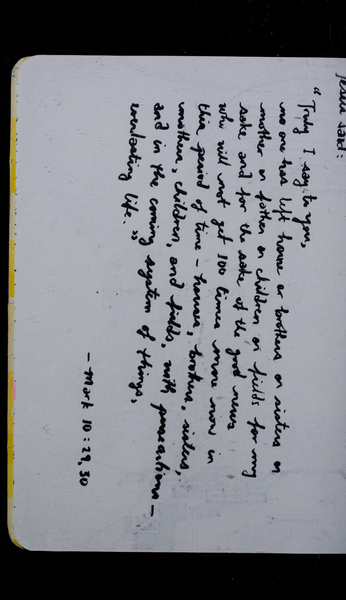 Jesus said:
"Truly I say to you,
no one has left house or brothers or sisters or
mother or father or children or fields for my
sake and for the sake of the good news
who will not get 100 times more now in
this period of time - houses, brothers, sisters,
mothers, children, and fields, with persecutions -
and in the coming system of things,
everlasting life."
- Mark 10:29,30